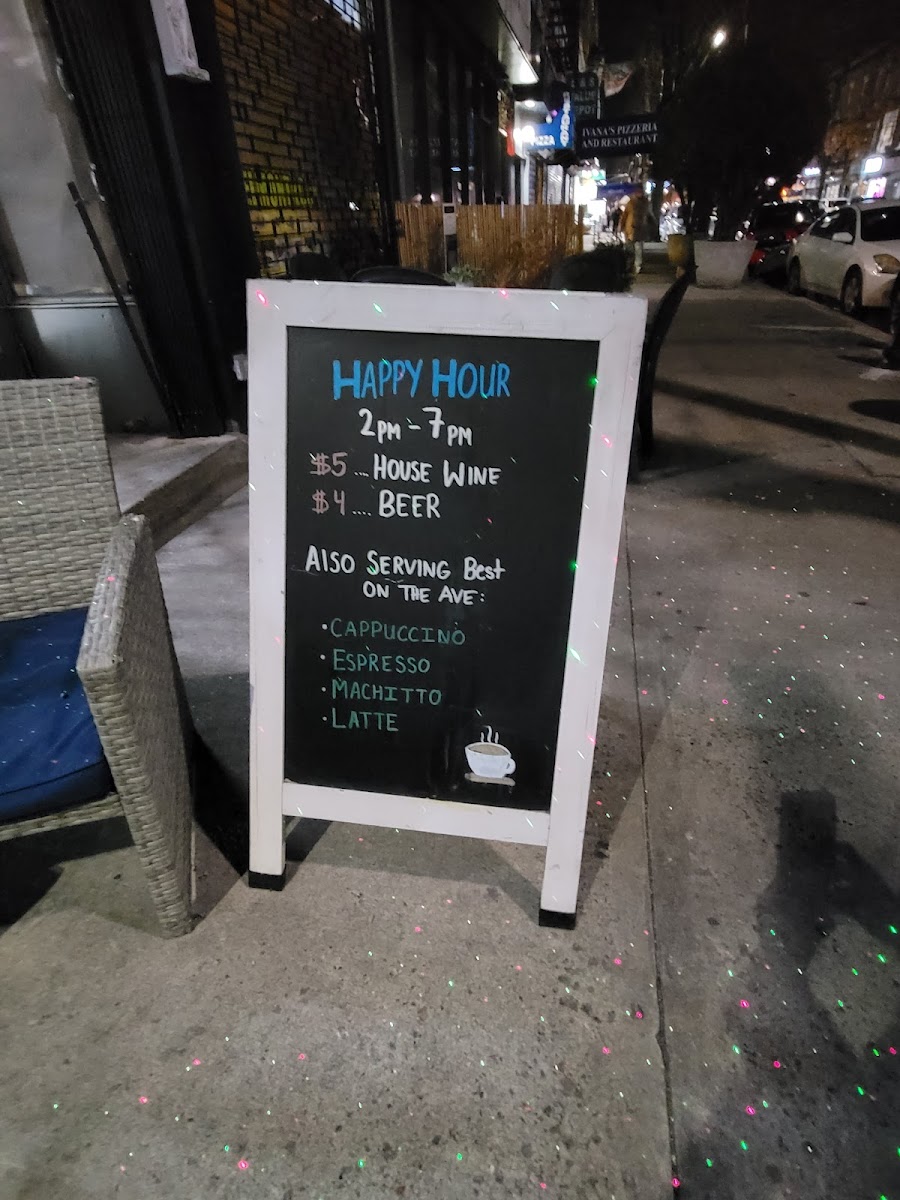 IVANA'S PIZZERIA
AND RESTAURANT
HAPPY HOUR
2PM - 7PM
$5 ... HOUSE WINE
$4 .... BEER
AlSO SERVING Best
ON THE AVE:
·CAPPUCCINO
·ESPRESSO
·MACHITTO
·LATTE